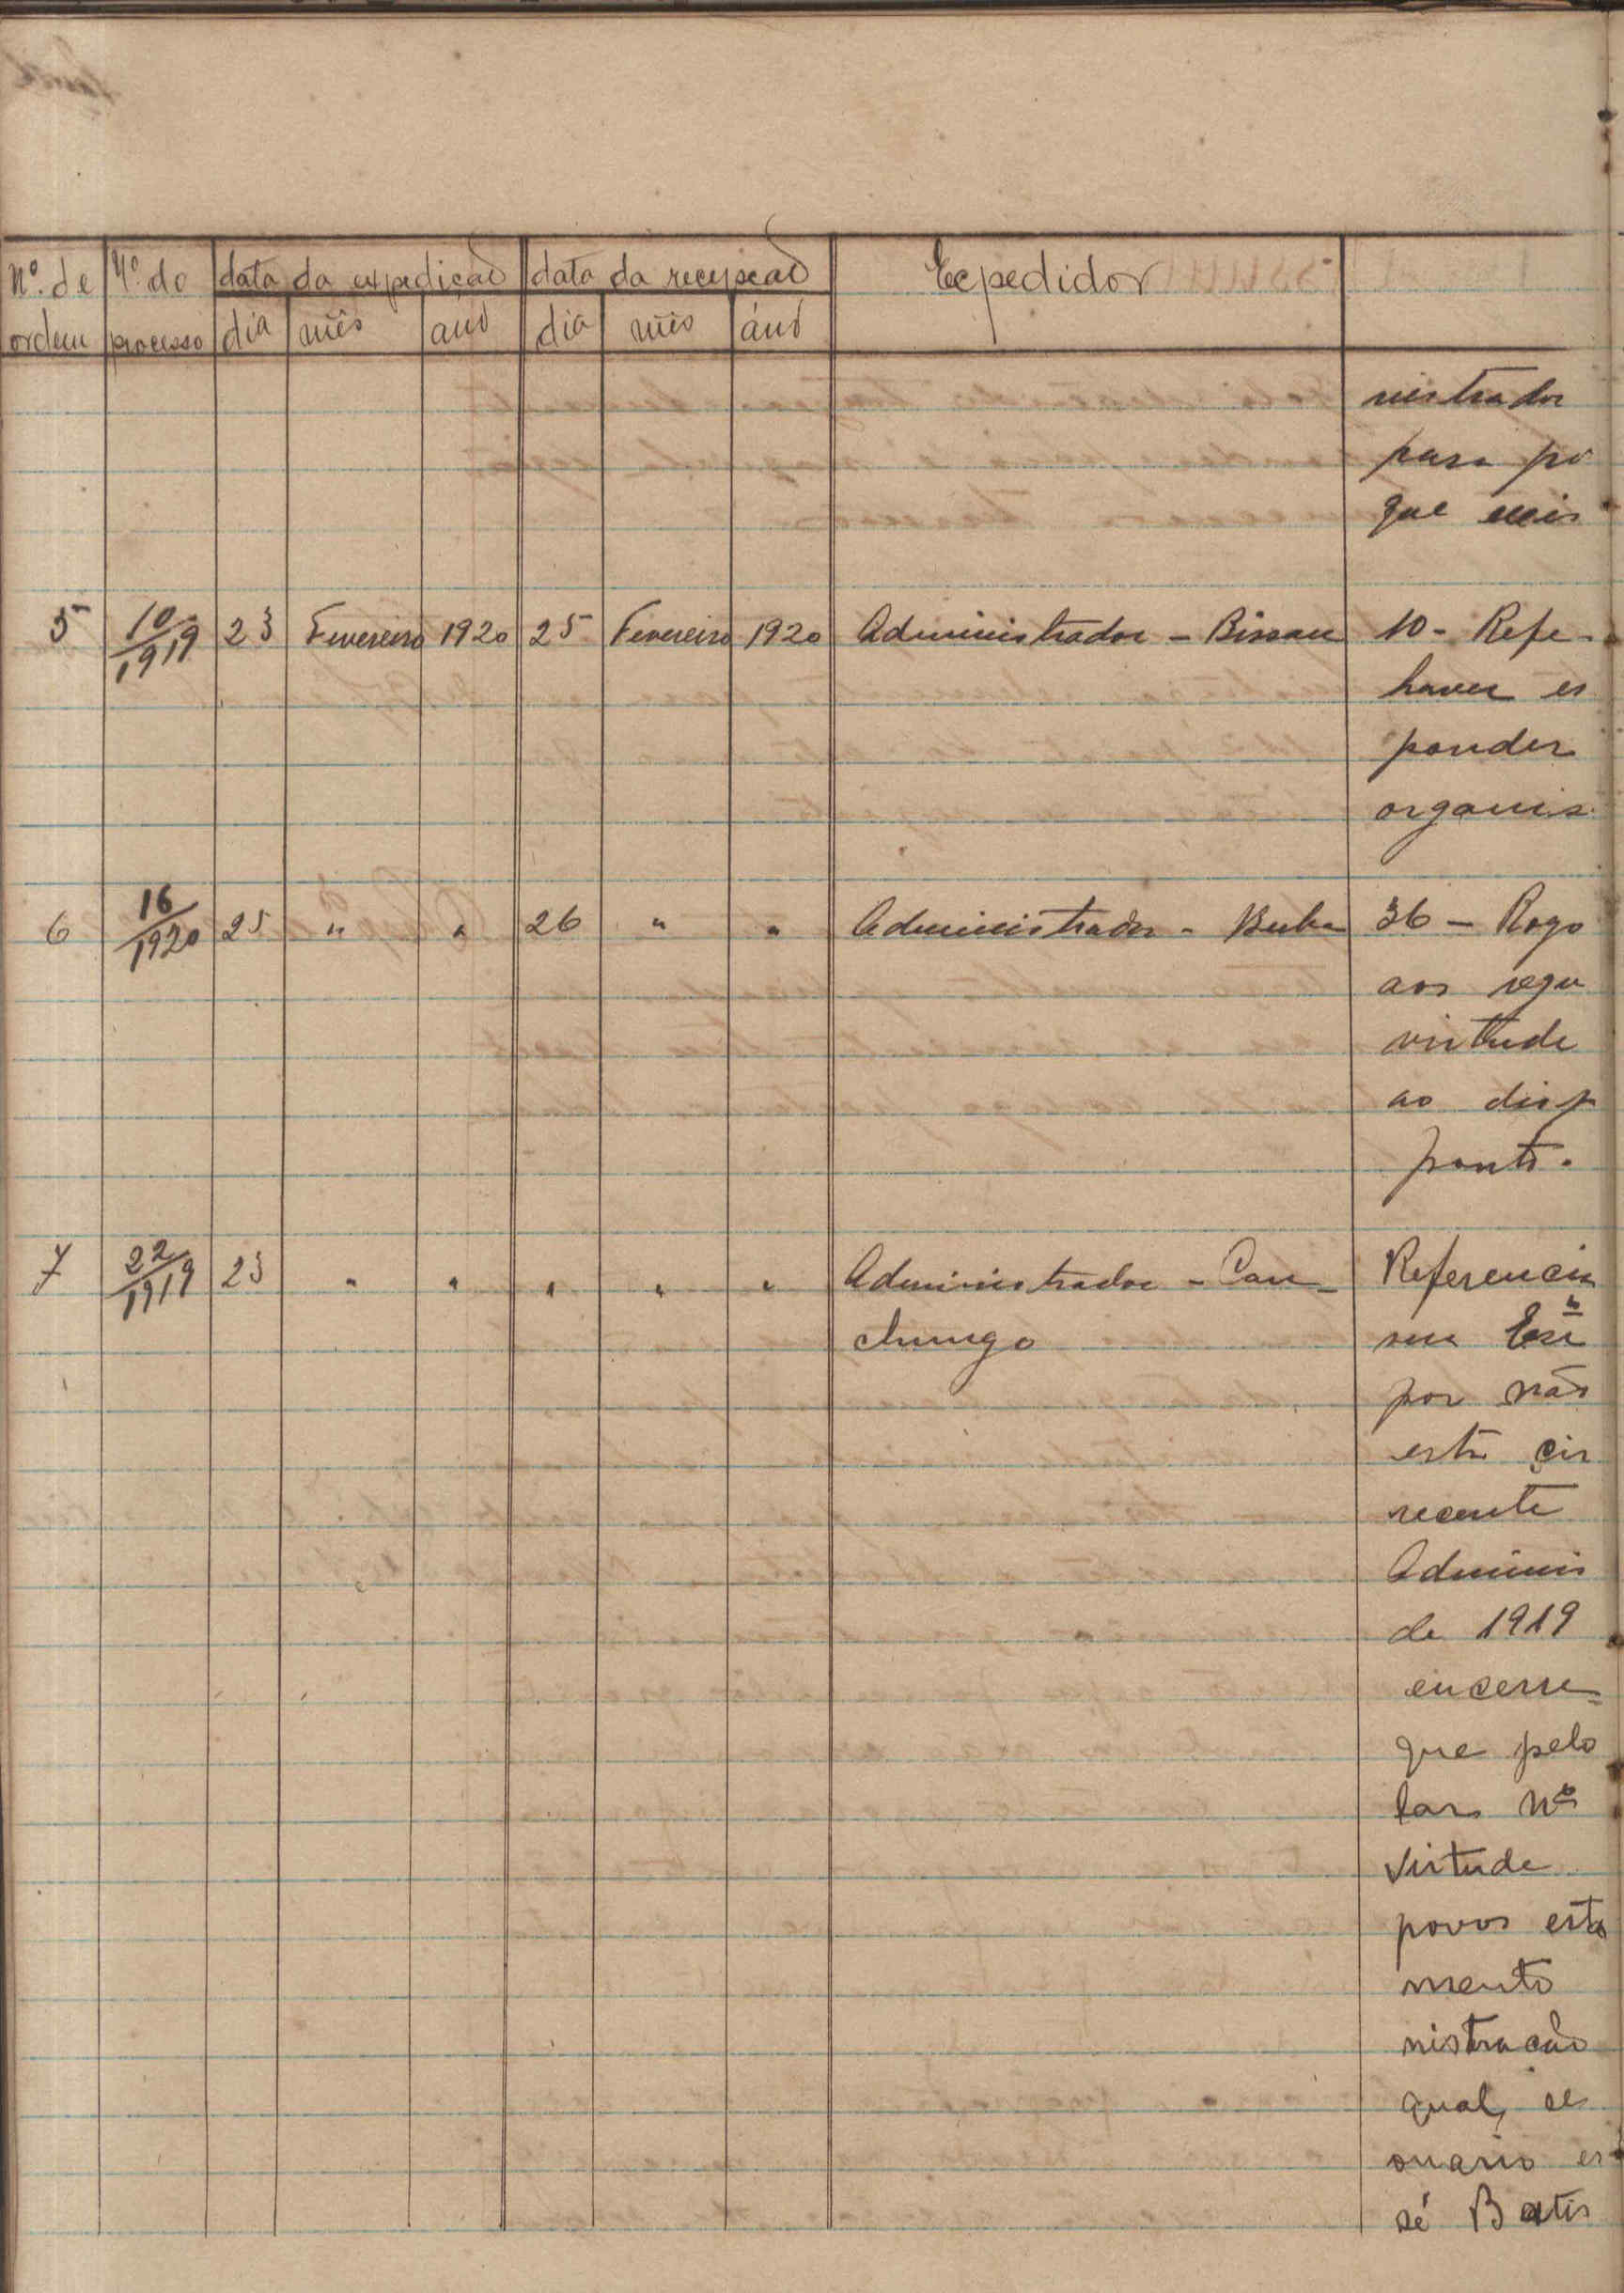 Nº. de Nº. do data da expedição data da recepção Expedidor
ordem processo dia mês ano dia mês áno
nistrador
para po
que
5 10/1919 23 Fevereiro 1920 25 Fevereiro 1920 Administrador - Bissau 10 - Refe-
haver es
ponder
organis
6 16/1920 25 " " 26 " " Administrador - Buba 36 - Rogo
aos regu
virtude
ao disp
ponto.
7 22/1919 23 " " " " " Administrador - Can- Referencia
chungo seu
por não
esta cir
recente
Adminis
de 1919
encerre=
que pelo
lar Nº
virtude
povos esta
mento
nistração
qual, se
onario es
sé Batis